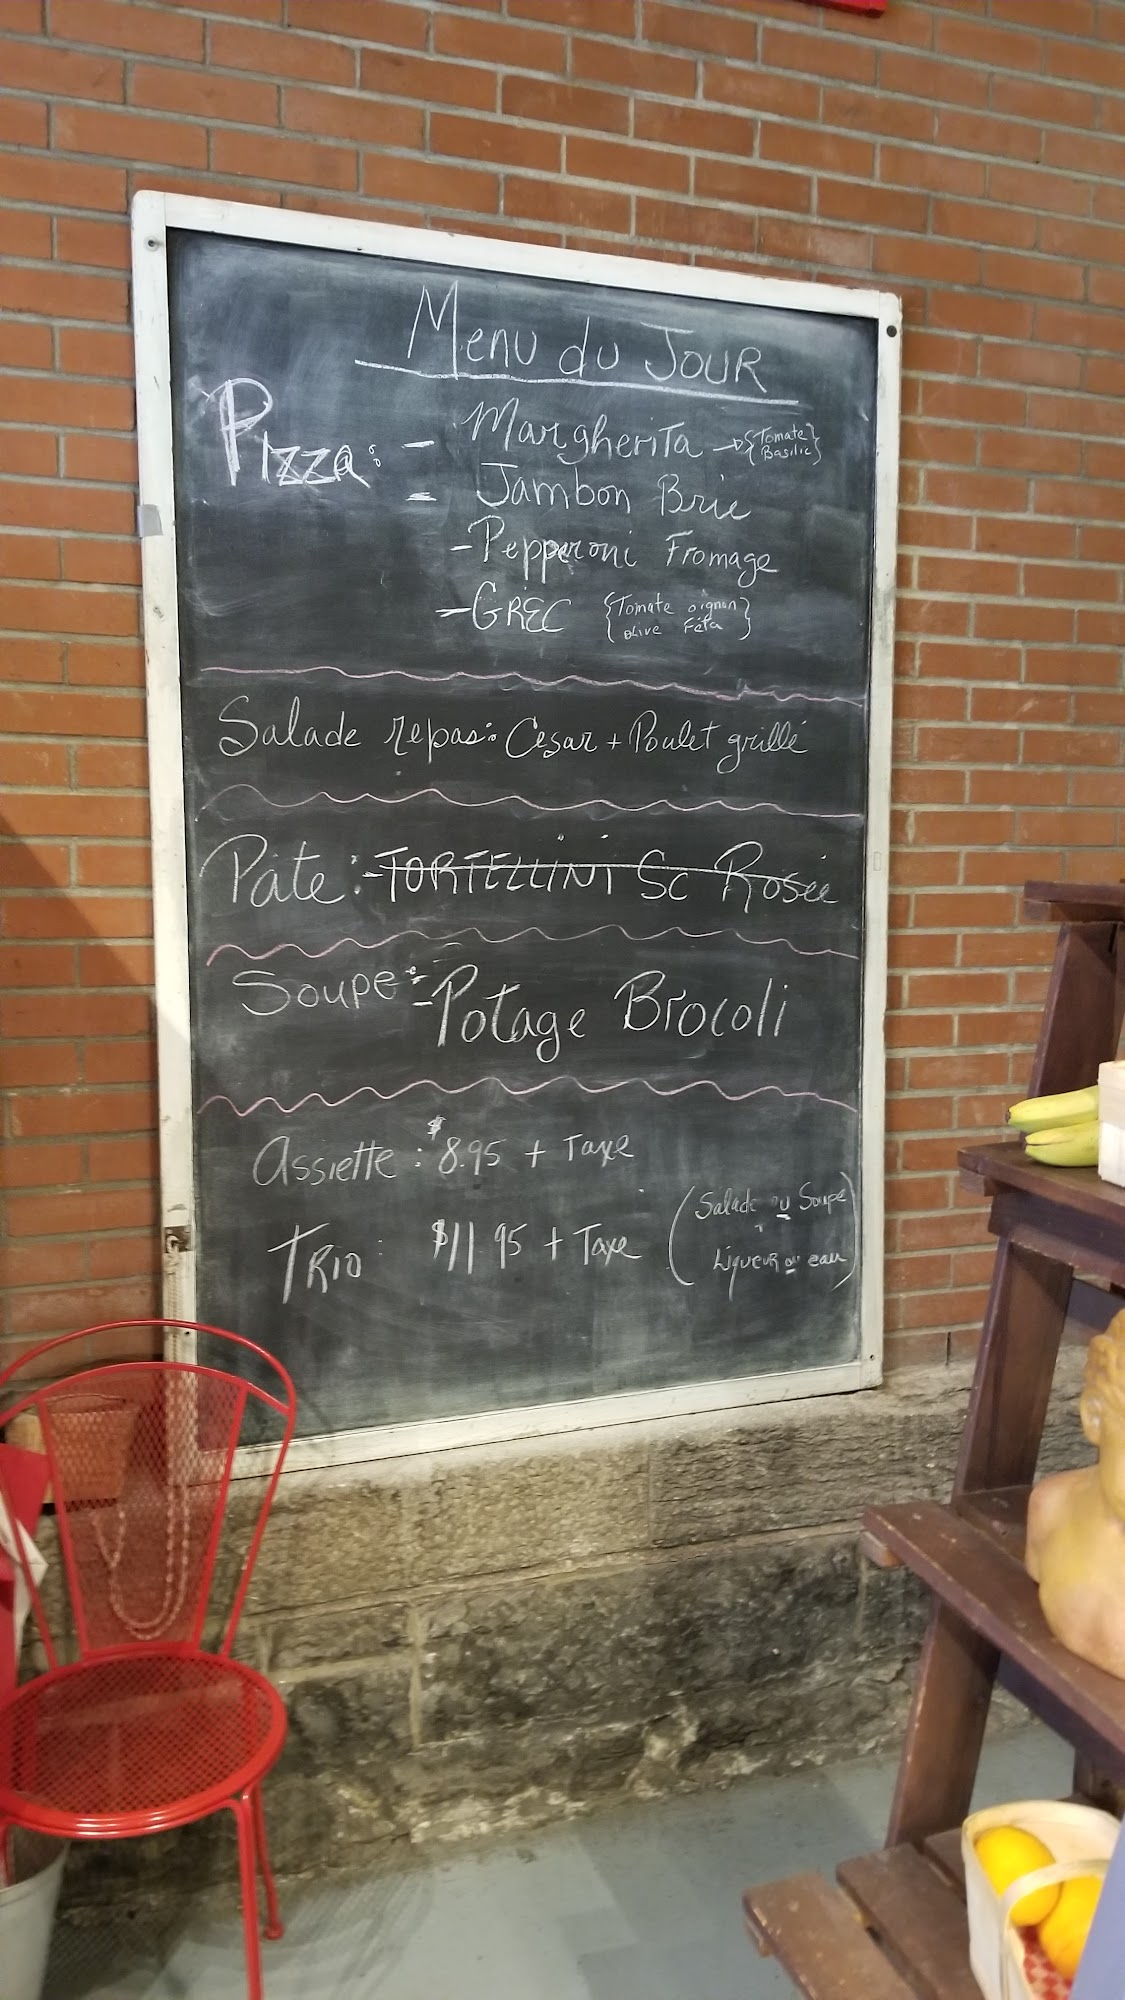 Menu du JOUR
Pizza: - Margherita → {Tomate Basilic}
- Jambon Brie
- Pepperoni Fromage
- GREC {Tomate oignon olive Féta}
Salade repas: Cesar + Poulet grillé
Pâte: - TORTELLINI Sc Rosée
Soupe: - Potage Brocoli
Assiette: $8.95 + Taxe
TRIO: $11.95 + Taxe (Salade ou Soupe
Liqueur ou eau)